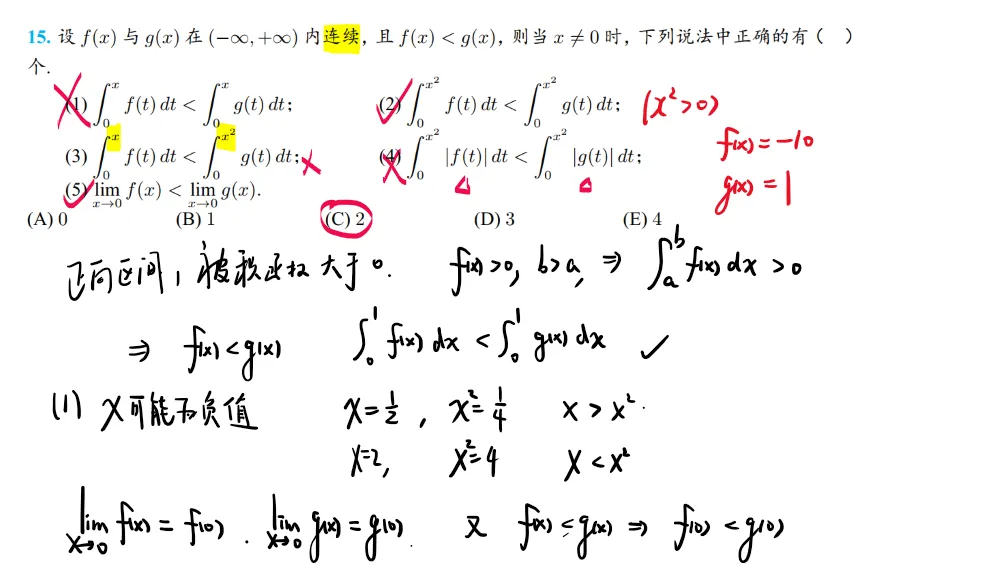 15. 设 f(x) 与 g(x) 在 (−∞,+∞) 内连续，且 f(x) < g(x)，则当 x ≠ 0 时，下列说法中正确的有（　）
个.
(1) ∫₀ˣ f(t) dt < ∫₀ˣ g(t) dt； (2) ∫₀^{x²} f(t) dt < ∫₀^{x²} g(t) dt； (x²>0)
f(x) = −10
(3) ∫₀ˣ f(t) dt < ∫₀^{x²} g(t) dt； (4) ∫₀^{x²} |f(t)| dt < ∫₀^{x²} |g(t)| dt；
g(x) = 1
(5) lim_{x→0} f(x) < lim_{x→0} g(x).
(A) 0 (B) 1 (C) 2 (D) 3 (E) 4
正向区间，被积函数大于0. f(x)>0, b>a, ⇒ ∫ₐᵇ f(x) dx > 0
⇒ f(x)<g(x) ∫₀¹ f(x) dx < ∫₀¹ g(x) dx ✓
(1) x可能为负值 x=1/2 , x²=1/4 x > x².
x=2, x²=4 x < x²
lim_{x→0} f(x) = f(0). lim_{x→0} g(x) = g(0). 又 f(x) ≤ g(x) ⇒ f(0) < g(0)